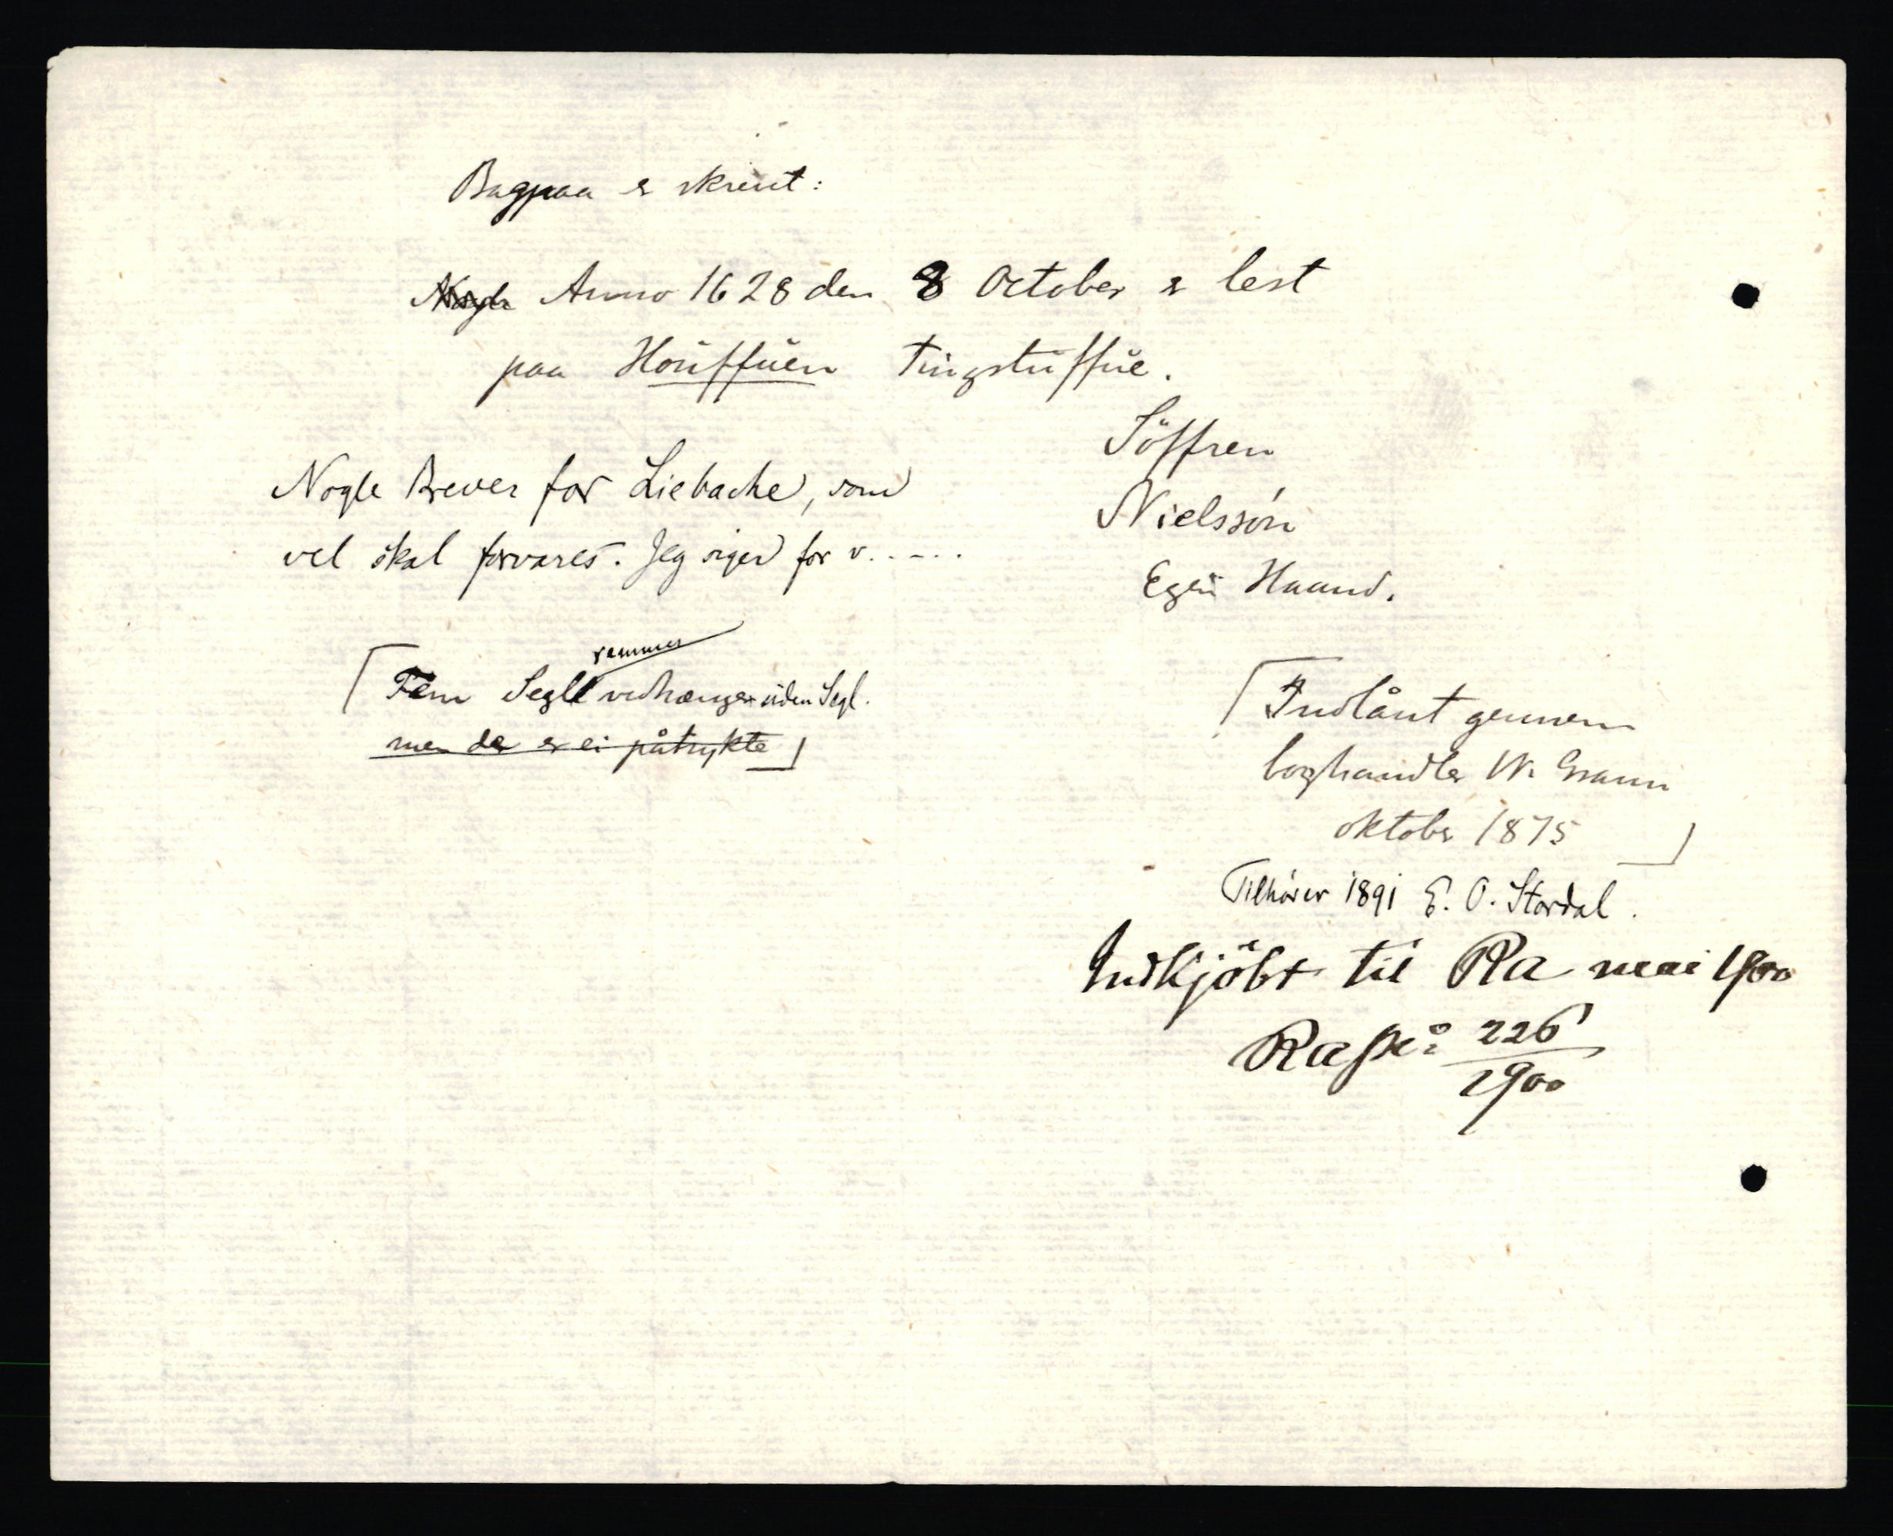 Bagpaa er skreut:
Nogle Anno 1628 den 8 October er lest
paa Houffuen Tingstuffue.
Söffren
Nielssön
Egen Haand.
Nogle Brever for Liebache, som
vel skal forvares. Jeg siger for v.....
[Fem Segl remmer vedhænger uden Segl.
men der er ei påtrykte]
[Indlånt gennem
boghandler W. Gram
oktober 1875]
Tilhører 1891 E. O. Stordal.
Indkjöbt til Ra mai 1900
Rapk: 226/1900